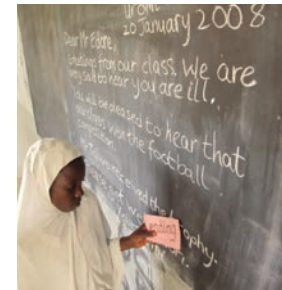 Uromi
20 January 2008
Dear Mr Edore,
Greetings from our class. We are
very sad to hear you are ill.
You will be pleased to hear that
won the football
competition.
received the trophy.
ending